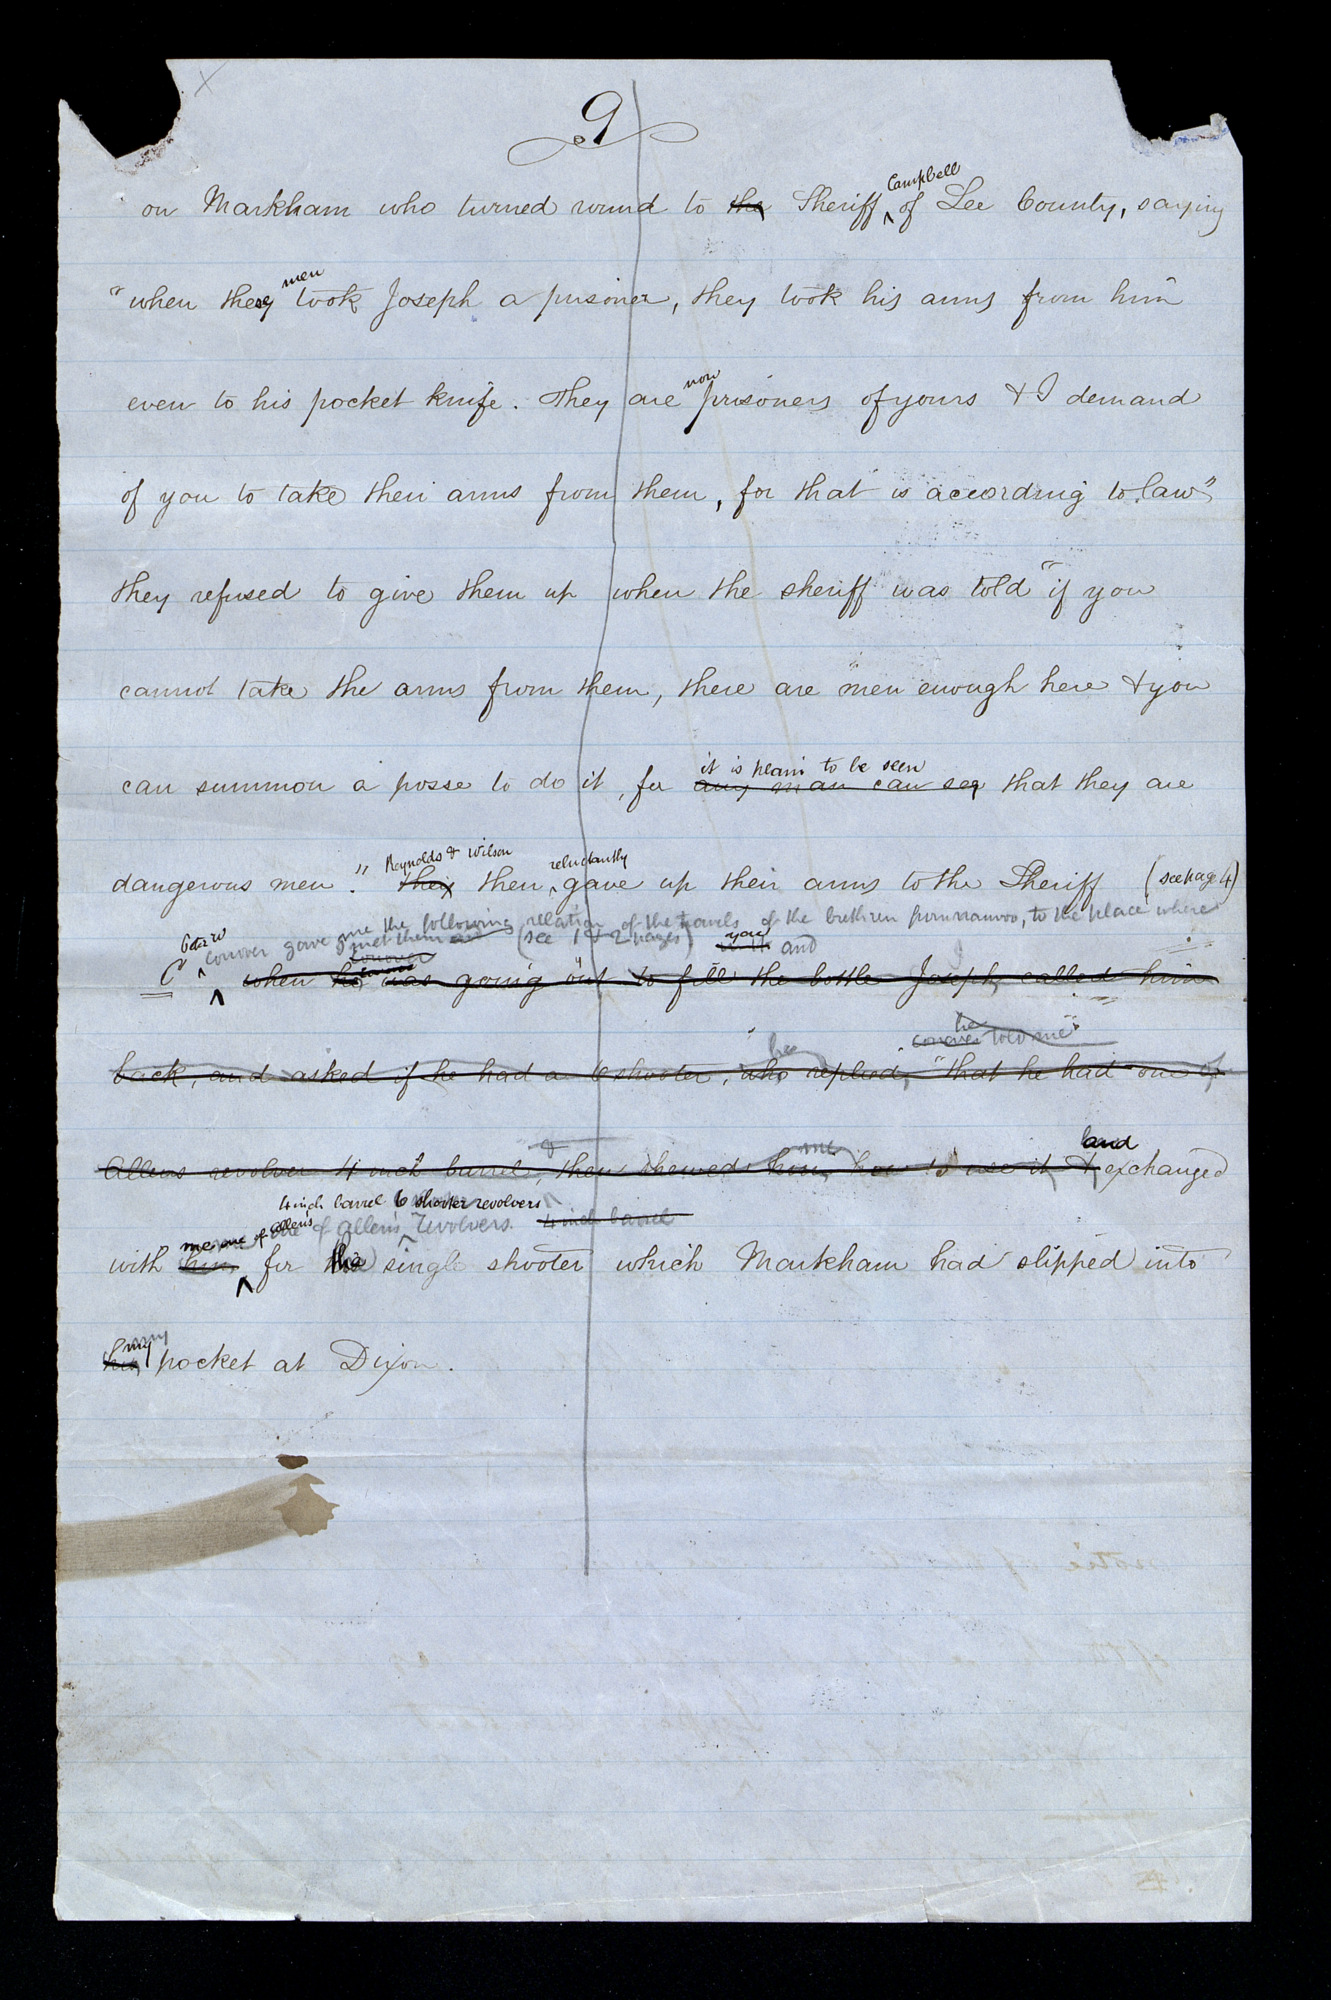 9
Campbell
on Markham who turned round to the Sheriff of Lee County, saying
men
"when these took Joseph a prisoner, they took his arms from him
now
even to his pocket knife. They are prisoners of yours & I demand
of you to take their arms from them, for that is according to law"
they refused to give them up when the sheriff was told "if you
cannot take the arms from them, there are men enough here & you
can summon a posse to do it, for
it is plain to be seen
any man can see that they are
Reynolds & Wilson reluctantly
dangerous men." they then gave up their arms to the Sheriff (see page 4)
Peter W
Conover gave me the following relation of the travels of the brethren from nauvoo, to the place where
met them (see 1 & 2 pages) you and
Conover
C when he was going out to fill the bottle Joseph called him
he
Conover told me"
he
back, and asked if he had a 6 shooter, who replied, "that he had one of
& me and
Allens revolver 4 inch barrel, then shewed him how to use it, & exchanged
4 inch barrel 6 shooter revolvers
me one of allen's of allen's revolvers 4 inch barrel
with him for the single shooter which Markham had slipped into
my my
his pocket at Dixon.